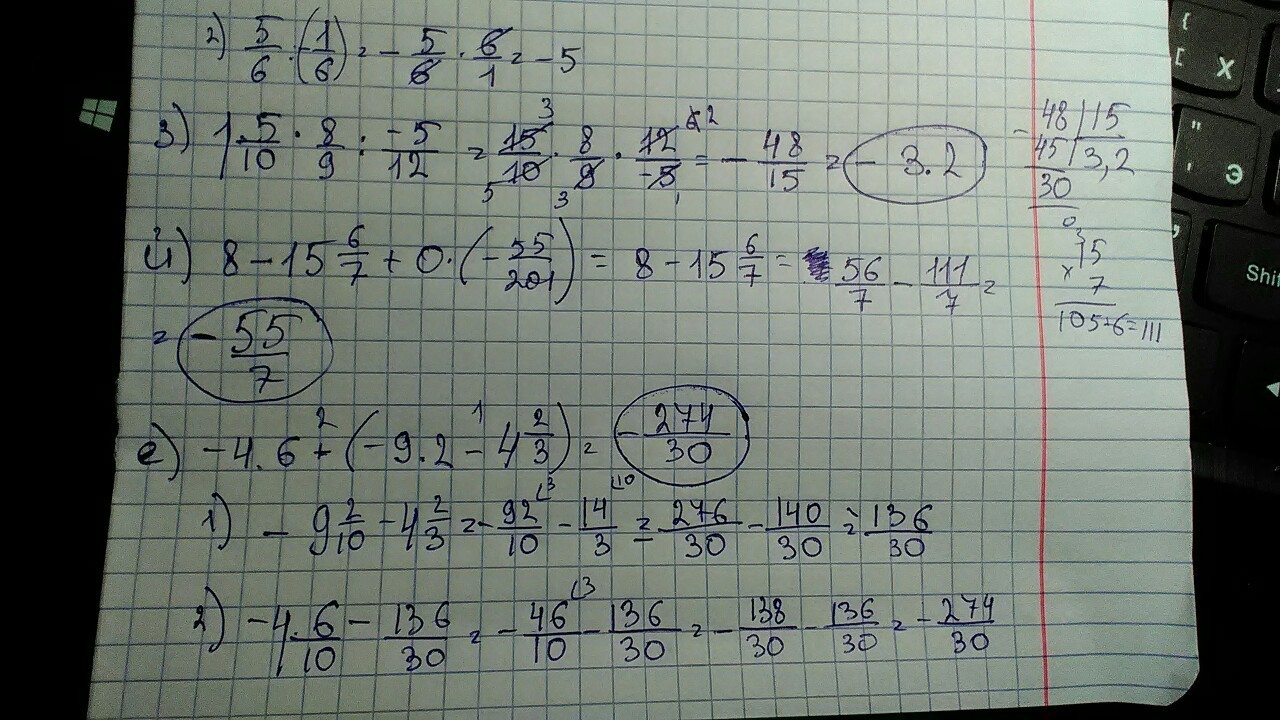 2) 5/6 · (-1/6) = - 5/6 · 6/1 = - 5
3) 1 5/10 · 8/9 : -5/12 = 15/10 · 8/9 · 12/-5 = - 48/15 = - 3.2
й) 8 - 15 6/7 + 0 · (- 55/201) = 8 - 15 6/7 = 56/7 - 111/7 =
= - 55/7
е) -4.6 + (-9.2 - 4 2/3) = - 274/30
1) - 9 2/10 - 4 2/3 = - 92/10 - 14/3 = 276/30 - 140/30 = - 136/30
2) -4 6/10 - 136/30 = - 46/10 - 136/30 = - 138/30 - 136/30 = - 274/30
48 | 15
45 | 3,2
30
0
15
× 7
105+6=111
{
[ Х
"
' Э
Shi